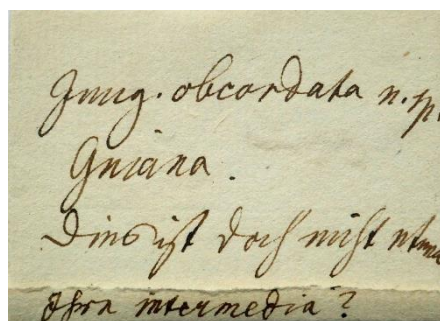 Jung. obcordata n. sp.
Guiana.
Dies ist doch nicht etwa
Ihre intermedia?